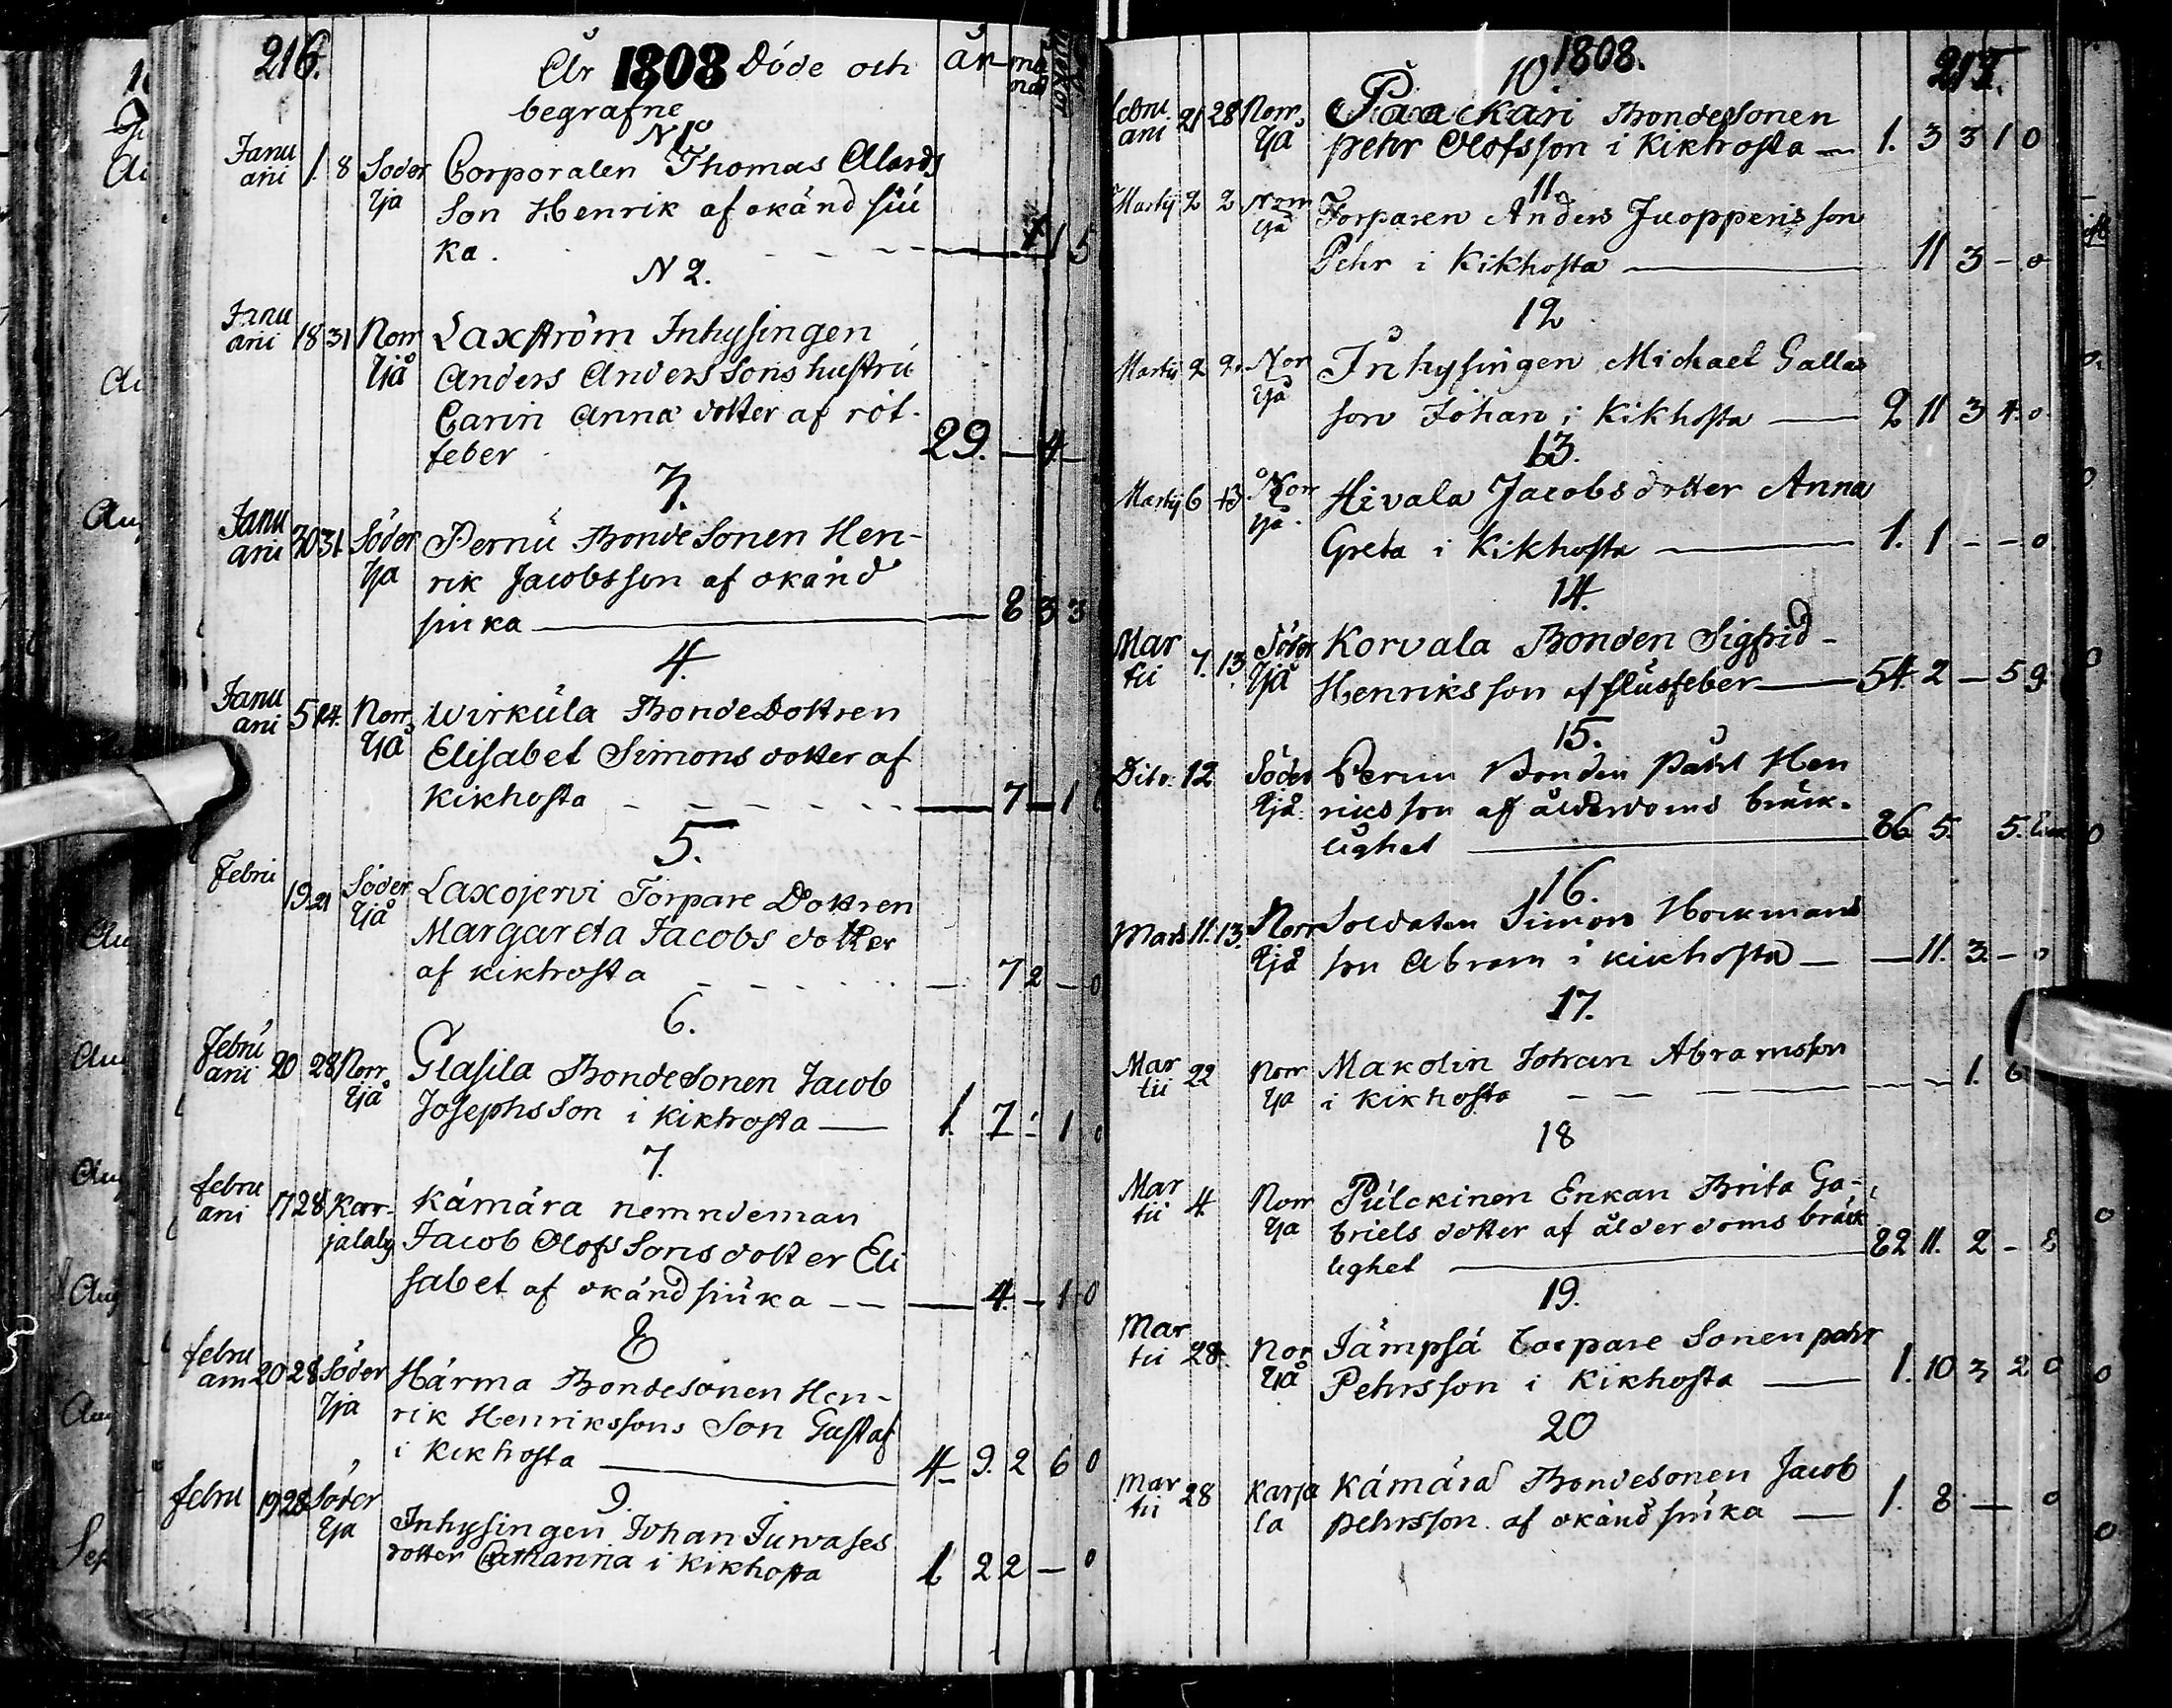 216.
År 1808 Döde och år må nad wekor
begrafne
N 1o
Janu ari 1. 8 Söder Corporalen Thomas Alards
Yja Son Henrik af okänd siu
ka. - - - 1 5
N 2.
Janu ari 18 31 Norr Laxström Inhysingen
Yjå Anders Anderssons hustru
Carin Anna dotter af röt-
feber 29. - 4 -
3.
Janu ari 30 31 Söder Pernu Bonde Sonen Hen-
Yja rik Jacobsson af okänd
siuka - 8 3 3
4.
Janu ari 5 14. Norr Wirkula Bonde Dottren
Yjå Elisabet Simons dotter af
Kikhosta - 7 - 1
5.
Febru 19 21 Söder Laxojervi Torpare Dottren
Yjå Margareta Jacobs dotter
af kikhosta - 7 2 - 0
6.
Febru ari 20 28 Norr Glasila Bondesonen Jacob
Yjå Josephsson i Kikhosta - 1. 7 - 1 0
7.
febru ari 17 28 Karr- Kämärä nemndeman
jalaby Jacob Olofssons dotter Eli
sabet af okänd siuka - - 4. - 1 0
8
febru ari 20 28 Söder Härma Bondesonen Hen-
Yja rik Henrikssons Son Gustaf
i Kikhosta 4 - 9. 2 6 0
9.
febru 19 28 Söder Inhysingen Johan Juwases
Yja dotter Catharina i Kikhosta 1 2 2 - 0
1808. 217.
10
febru ari 21 28 Norr Paackari Bondesonen
Yjå Pehr Olofsson i Kikhosta - 1. 3 3 1 0
11
Martij 2 2 Norr Torparen Anders Juopperis son
Yjå Pehr i Kikhosta - 11 3 - 0
12
Martij 2 2. Nor Inhysingen Michael Gallas
Yjå son Johan i Kikhosta - 2 11 3 4. 0
13.
Martij 6 13 Norr Hivala Jacobs dotter Anna
Yja. Greta i Kikhosta - 1. 1 - - 0
14.
Mar tii 7. 13. Söder Korvala Bonden Sigfrid-
Yjå Henriksson af flussfeber - 54. 2 - 5 9.
15.
Dito. 12 Söder Pernu Bonden Påhl Hen
Yjå riksson af ålderdoms bräck-
lighet - 86 5. 5.
16.
Mars 11. 13. Norr Soldaten Simon Hockmans
Yjå son Abram i kikhosta - - 11. 3. - 0
17.
Mar tii 22 Norr Makolin Johan Abramsson
Yja i Kikhosta - - - - 1. 6
18
Mar tii 4 Norr Pulckinen Enkan Brita Ga-
Yja briels dotter af ålderdoms bräck
lighet - 82 11. 2 - 8
19.
Mar tii 28. Nor Jämpsä Torpare Sonen pehr
Yjå Pehrsson i Kikhosta - 1. 10 3 2 0
20
Mar tii 28 Karja Kämärä Bondesonen Jacob
la pehrsson af okänd siuka - 1. 8 - 0